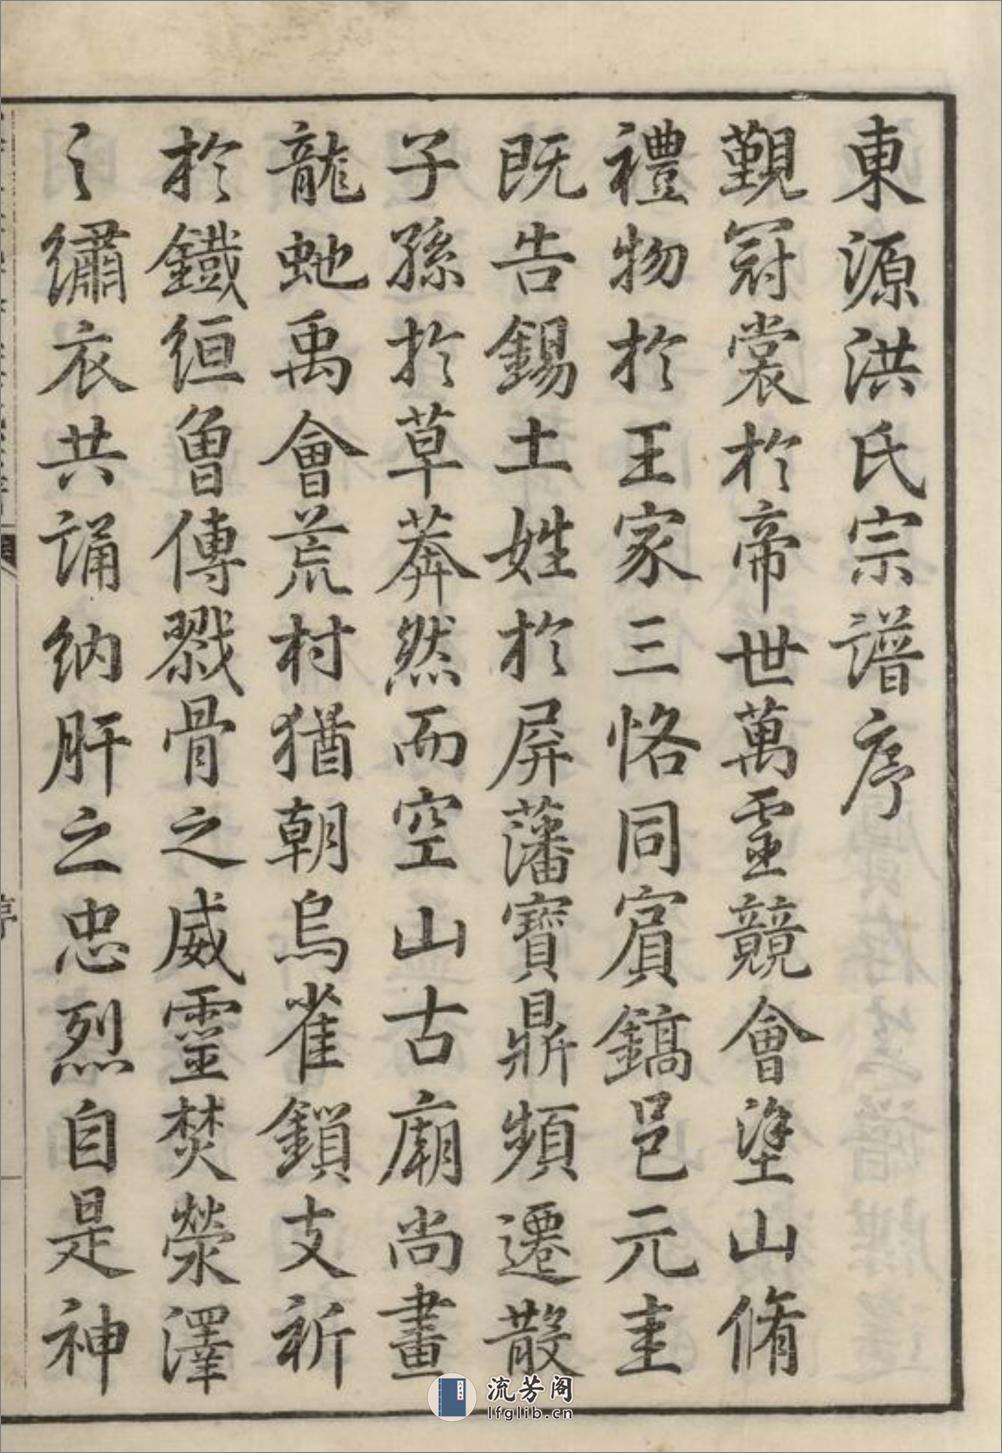 東源洪氏宗譜序
覲冠裳於帝世萬靈競會塗山脩
禮物於王家三恪同賓鎬邑元圭
既告錫土姓於屏藩寶鼎頻遷散
子孫於草莽然而空山古廟尚畫
龍虵禹會荒村猶朝烏雀鎖支祈
於鐵䋲魯傳戮骨之威靈焚滎澤
之繡衣共誦納肝之忠烈自是神
流芳阁
lfglib.cn